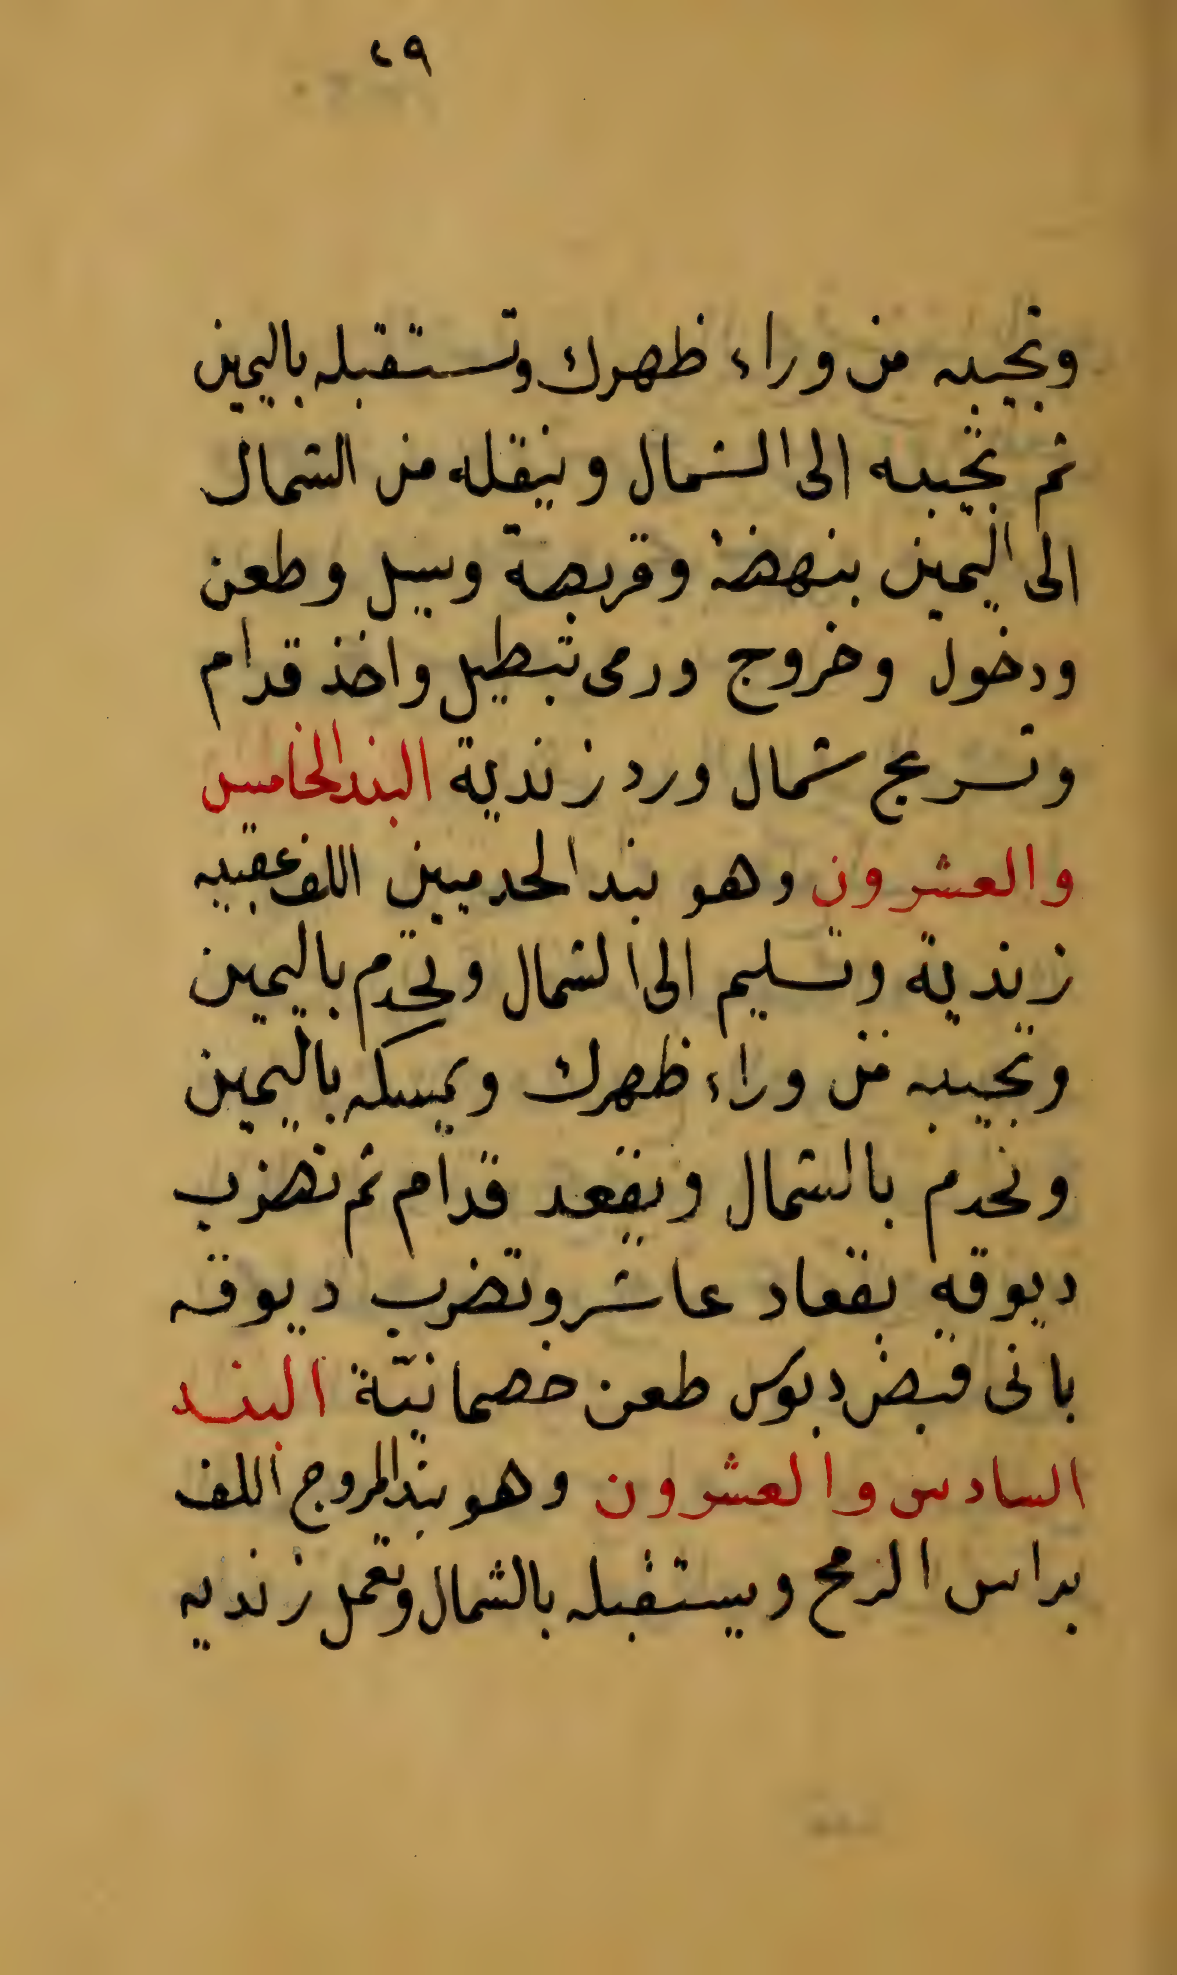 ٤٩
وتجيبه من وراء ظهرك وتستقبله باليمين
ثم تجيبه الى الشمال وتنقله من الشمال
الى اليمين بنهضة وقربصة وسيل وطعن
ودخول وخروج ورمى تبطيل واخذ قدام
وتسريج شمال ورد زندية البند الخامس
والعشرون وهو بند الحدميين اللف عقبيه
زندية وتسليم الى الشمال وتخدم باليمين
وتجيبه من وراء ظهرك ويمسكه باليمين
وتخدم بالشمال ويقعد قدام ثم تضرب
ديوقه بقعاد عاشر وتضرب ديوقه
بانى قبض دبوس طعن خصمانية البند
السادس والعشرون وهو بند المروج اللف
براس الرمح ويستقبله بالشمال وتعمل زنديه